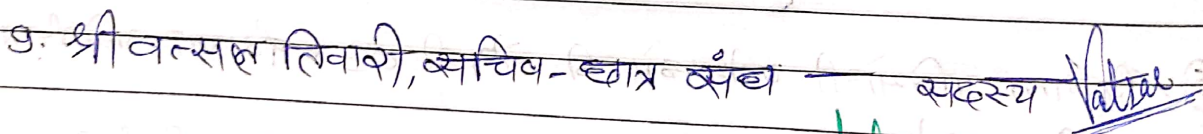 9. श्री वत्सल तिवारी, सचिव - छात्र संघ — सदस्य Vatsal